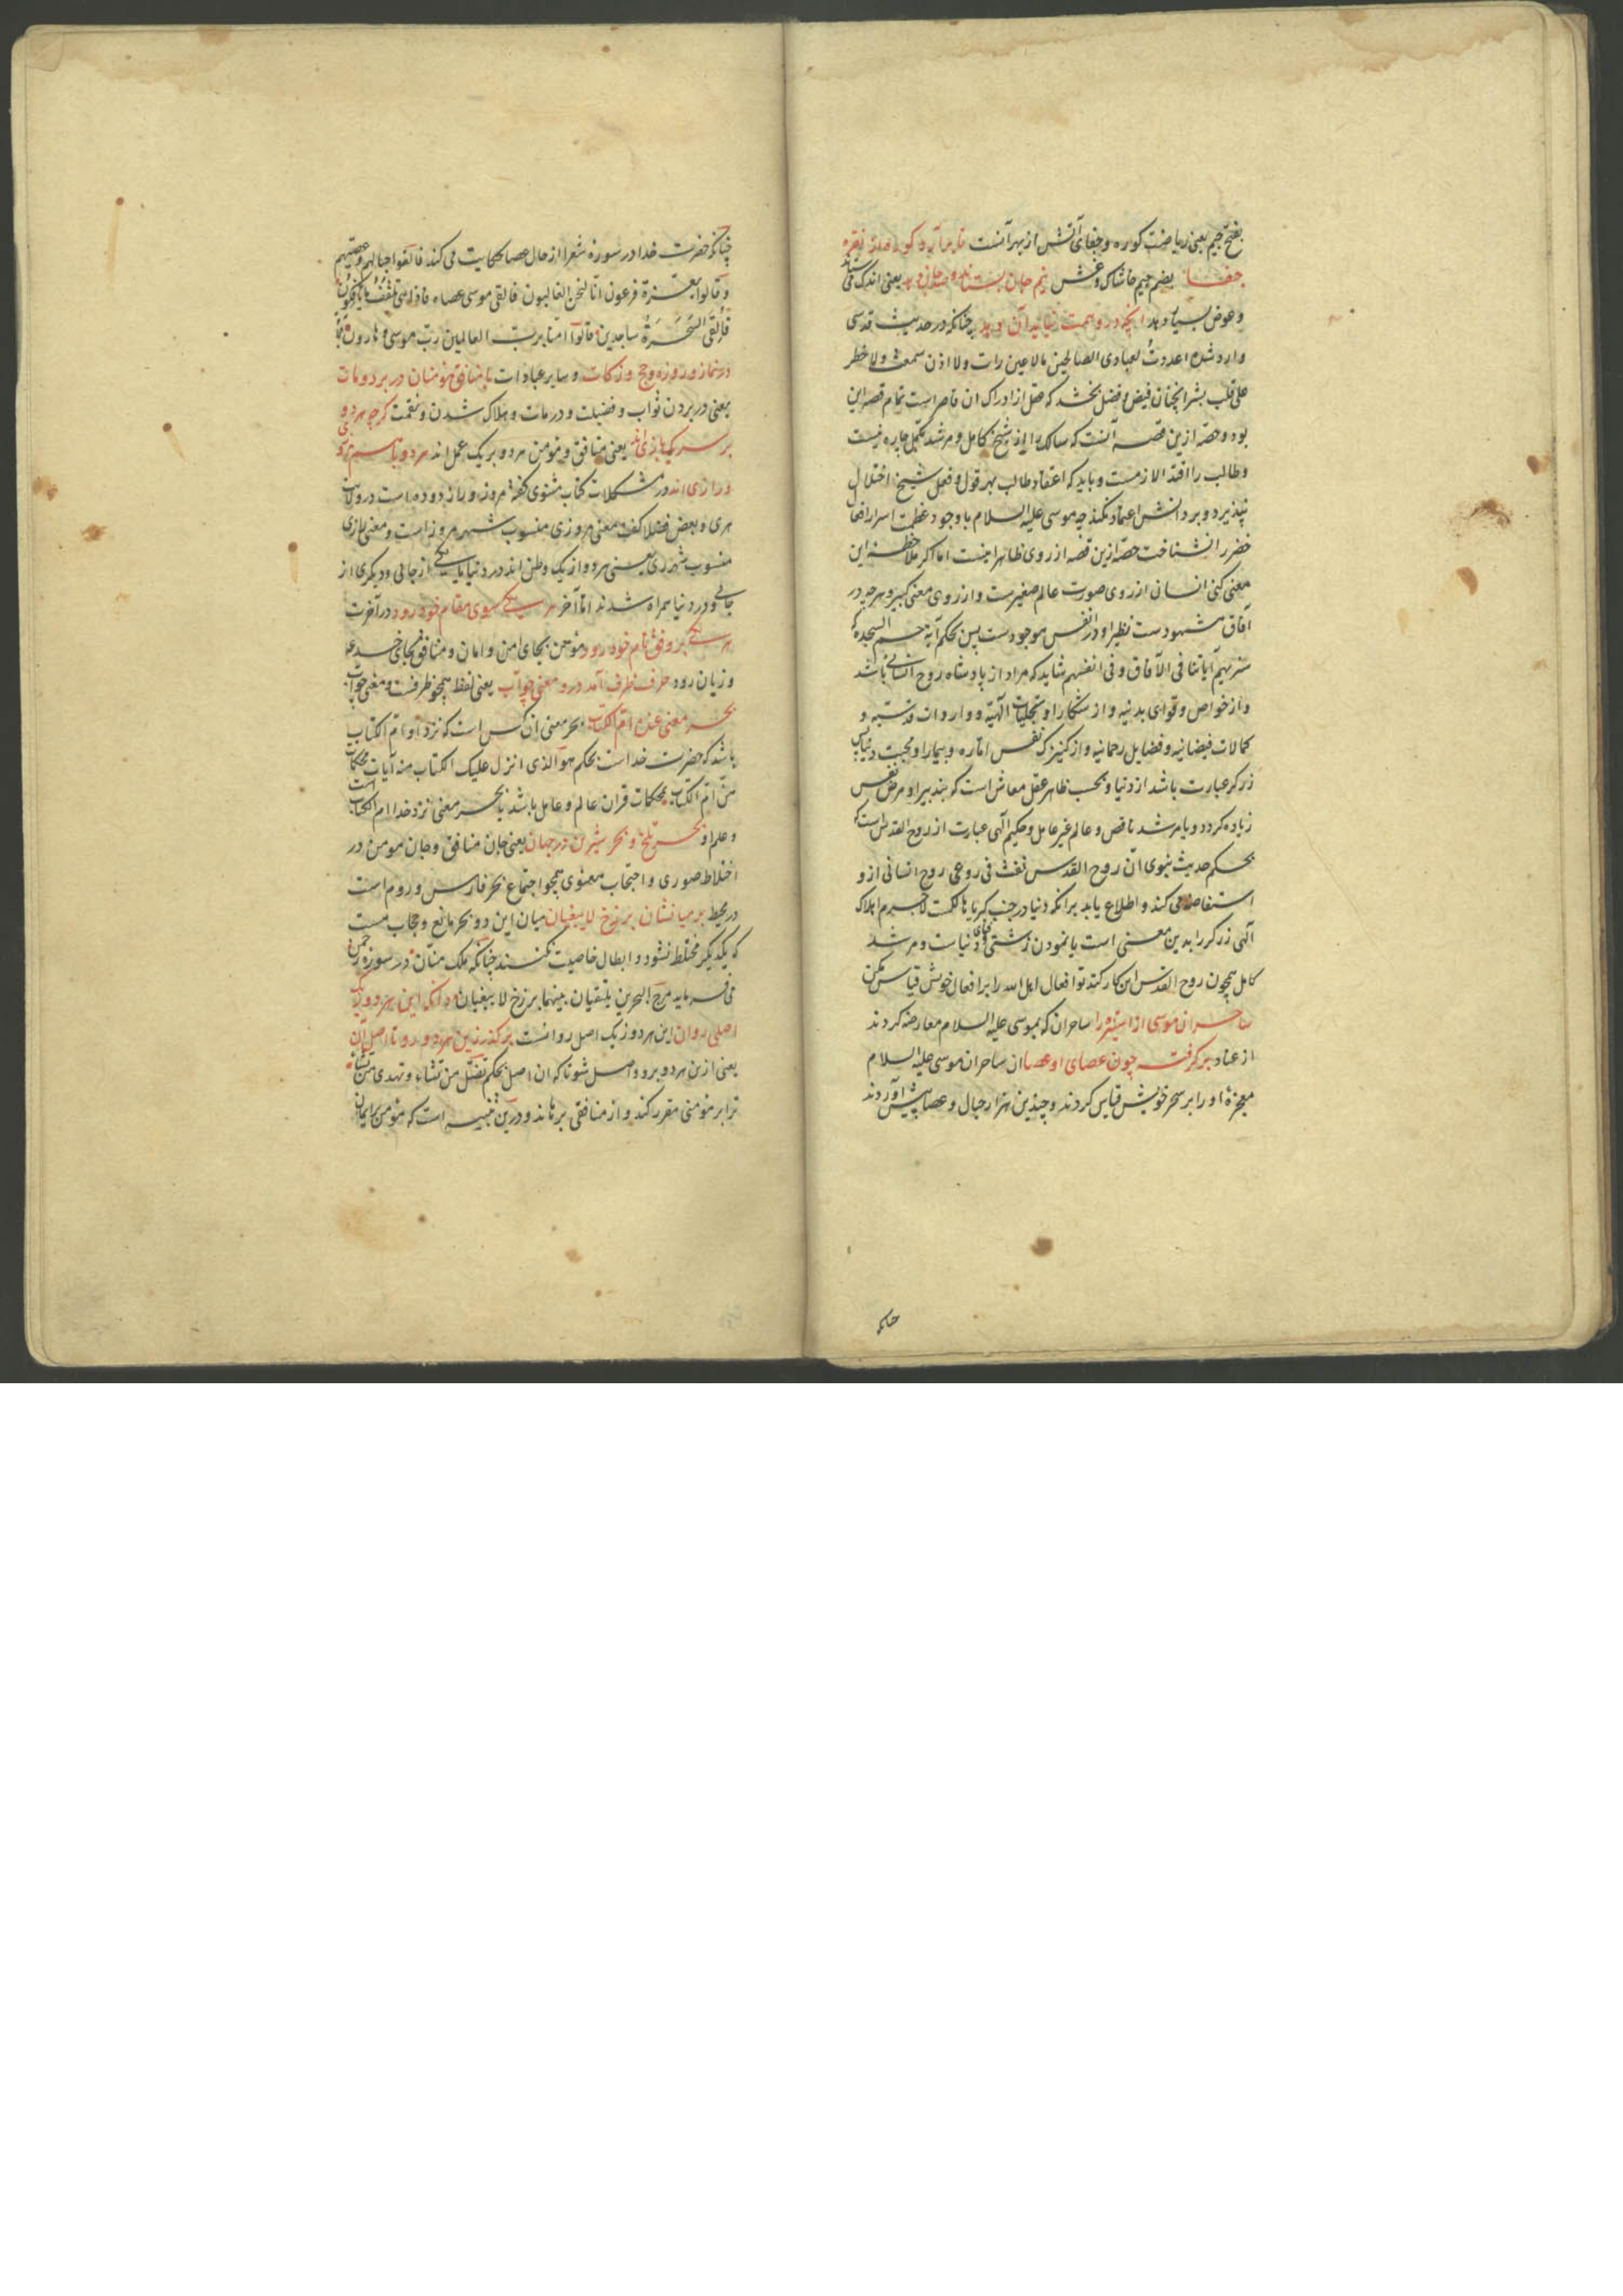 بفتح جیم یعنی ریاضت کوره و جفای آتش از بهر آنست تا برآرد کوره از نقره
جفا بضم جیم خاشاک و غش نیم جان بستاند و صد جان دهد یعنی اندک می ستاند
و عوض بسیار دهد آنچه در وهمت نیاید آن دهد چنانکه در حدیث قدسی
وارد شده اعددت لعبادی الصالحین مالا عین رات ولا اذن سمعت ولا خطر
علی قلب بشر آنچنان فیض و فضل بخشد که عقل از ادراک ان قاصر است تمام قصه این
بود و حصه ازین قصه آنست که سالک را از شیخ کامل و مرشد مکمل چاره نیست
و طالب را اقتدا لازمست و باید که اعتقاد طالب بهر قول و فعل شیخ اختلال
نپذیرد و بر دانش اعتماد نکند چه موسی علیه السلام با وجود عظمت اسرار افعال
خضر را نشناخت حصه ازین قصه از روی ظاهر اینست اما اگر ملاحظه این
معنی کنی انسان از روی صورت عالم صغیرست و از روی معنی کبیر و هر چه در
آفاق مشهودست نظیر او در انفس موجودست پس بحکم آیه حم السجده که
سنریهم آیاتنا فی الآفاق و فی انفسهم شاید که مراد از پادشاه روح انسانی باشد
و از خواص و قوای بدنیه و از شکار او تجلیات الهیه و واردات قدسیه و
کمالات فیضانیه و فضایل رحمانیه و از کنیزک نفس اماره و بیمار او محبت دنیا پس
زرکر عبارت باشد از دنیا و بحسب ظاهر عقل معاش است که بتدبیر او مرض نفس
زیاده کردد و یا مرشد ناقص و عالم غیر عامل و حکیم آلهی عبارت از روح القدس است که
بحکم حدیث نبوی ان روح القدس نفث فی روعی روح انسانی ازو
استفاضه می کند و اطلاع یابد برانکه دنیا در جنب کبریا هالکست لاجرم اهلاک
آلهی زرکر را بدین معنی است یا نمودن زشتی و فنای دنیاست و مرشد
کامل همچون روح القدس این کار کند تو افعال اهل الله را بر افعال خویش قیاس مکن
ساحران موسی از استیزه را ساحران که بموسی علیه السلام معارضه کردند
از عناد برگرفته چون عصای او عصا ان ساحران موسی علیه السلام
معجزهٔ او را بر سحر خویش قیاس کردند و چندین هزار حبال و عصا پیش آوردند
چنانکه حضرت خدا در سوره شعرا از حال عصا حکایت می کند فالقوا حبالهم و عصیهم
و قالوا بعزة فرعون انا لنحن الغالبون فالقی موسی عصاه فاذا هی تلقف ما یافکون
فالقی السحرة ساجدین قالوا امنا برب العالمین رب موسی و هارون
در نماز و روزه و حج و زکات و سایر عبادات با منافق مومنان در برد و مات
یعنی در بردن ثواب و فضیلت و درمات و هلاک شدن و نقمت گرچه هر دو
بر سر یک بازی اند یعنی منافق و مؤمن هر دو بر یک عمل اند هر دو با هم مروزی
و رازی اند در مشکلات کتاب مثنوی گفته مروز و راز دو ده است در ولایت
هری و بعض فضلا گفته معنی مروزی منسوب شهر مروز است و معنی رازی
منسوب شهر ری یعنی هر دو از یک وطن اند در دنیا یا یکی از جائی و دیگری از
جائی و در دنیا همراه شدند اما آخر هر یکی سوی مقام خود رود در آخرت
هر یکی بر وفق نام خود رود مؤمن بجای امن و امان و منافق بجای خسرت
و زیان رود حرف ظرف آمد درو معنی چو آب یعنی لفظ همچو ظرفست و معنی چو آب
بحر معنی عنده ام الکتاب بحر معنی ان کس است که نزد او ام الکتاب
باشد که حضرت خداست بحکم هو الذی انزل علیک الکتاب منه آیات محکمات
هن ام الکتاب بمحکمات قران عالم و عامل باشد یا بحر معنی نزد خدا ام الکتاب است
و علم او بحر تلخ و بحر شیرین در جهان یعنی جان منافق و جان مومن در
اختلاط صوری و اجتناب معنوی همچو اجتماع بحر فارس و روم است
در محیط در میانشان برزخ لا یبغیان میان این دو بحر مانع و حجاب هست
که یکدیگر مختلط نشود و ابطال خاصیت نکنند چنانکه ملک منان در سوره رحمن
می فرماید مرج البحرین یلتقیان بینهما برزخ لا یبغیان دانکه این هر دو ز یک
اصلی روان این هر دو ز یک اصل روانست برگذر زین هر دو رو تا اصل آن
یعنی ازین هر دو برو واصل شو تا که ان اصل بحکم تضل من تشاء و تهدی من تشاء
ترا بر مؤمنی مقرر کند و از منافقی برهاند و درین تنبیه است که مؤمن بایمان